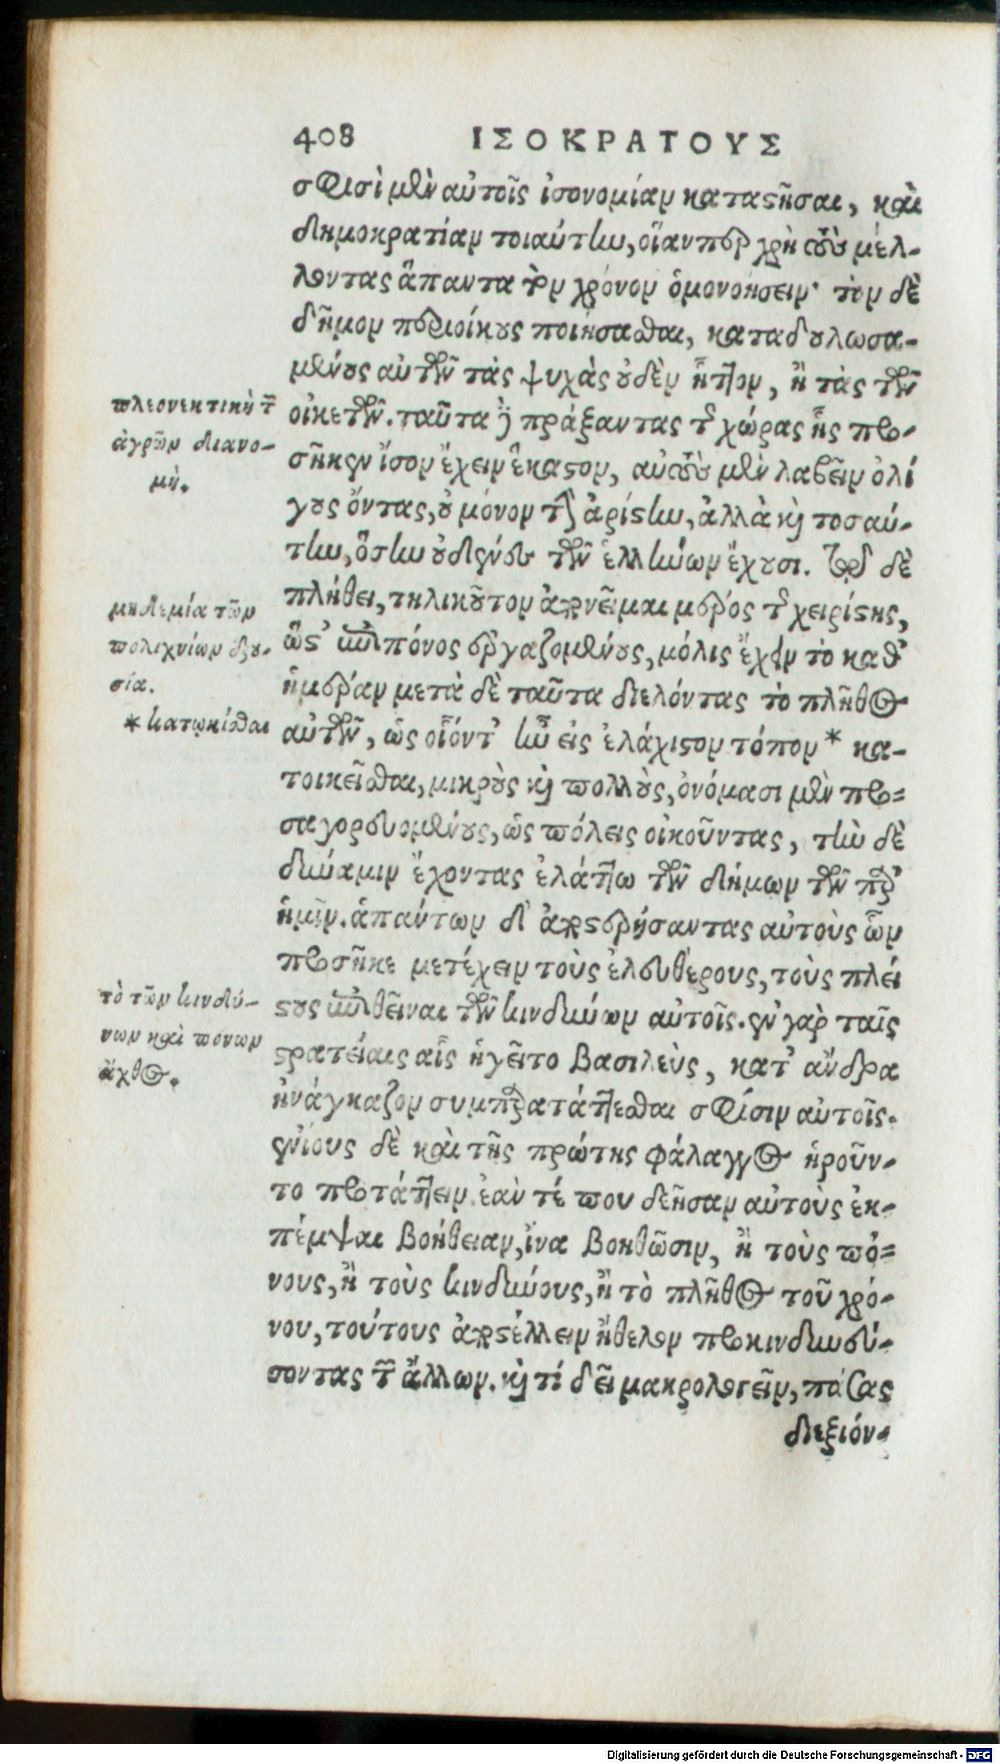 408 ΙΣΟΚΡΑΤΟΥΣ
σφισὶ μὲν αὐτοῖς ἰσονομίαν καταστῆσαι, καὶ
δημοκρατίαν τοιαύτην, οἵαν περ χρὴ τοὺς μέλ-
λοντας ἅπαντα τὸν χρόνον ὁμονοήσειν· τὸν δὲ
δῆμον περιοίκους ποιήσασθαι, καταδουλωσα-
μένους αὐτῶν τὰς ψυχὰς οὐδὲν ἧττον, ἢ τὰς τῶν
πλεονεκτικὴ τῶν
ἀγρῶν διανο-
μή.
οἰκετῶν. ταῦτα δὲ πράξαντας τῆς χώρας ἧς προ-
σῆκεν ἴσον ἔχειν ἕκαστον, αὐτοὺς μὲν λαβεῖν ὀλί
γους ὄντας, οὐ μόνον τὴν ἀρίστην, ἀλλὰ καὶ τοσαύ-
την, ὅσην οὐδένες τῶν ἑλλήνων ἔχουσι. τῷ δὲ
πλήθει, τηλικοῦτον ἀπονεῖμαι μέρος τῆς χειρίστης,
μηδεμία τῶν
πολιχνίων ἐξου-
σία.
* κατῳκίσθαι
ὥστ' ἐπιπόνως ἐργαζομένους, μόλις ἔχειν τὸ καθ'
ἡμέραν μετὰ δὲ ταῦτα διελόντας τὸ πλῆθος
αὐτῶν, ὡς οἷόντ' ἦν εἰς ἐλάχιστον τόπον * κα-
τοικεῖσθαι, μικροὺς καὶ πολλοὺς, ὀνόμασι μὲν προ-
σαγορευομένους, ὡς πόλεις οἰκοῦντας, τὴν δὲ
δύναμιν ἔχοντας ἐλάττω τῶν δήμων τῶν παρ'
ἡμῖν. ἁπάντων δ' ἀποστερήσαντας αὐτοὺς ὧν
προσῆκε μετέχειν τοὺς ἐλευθέρους, τοὺς πλεί
τὸ τῶν κινδύ-
νων καὶ πόνων
ἄχθος.
στους ἐπιθεῖναι τῶν κινδύνων αὐτοῖς. ἐν γὰρ ταῖς
στρατείαις αἷς ἡγεῖτο βασιλεὺς, κατ' ἄνδρα
ἠνάγκαζον συμπαρατάττεσθαι σφίσιν αὐτοῖς.
ἐνίους δὲ καὶ τῆς πρώτης φάλαγγος ᾑροῦν-
το προτάττειν. ἐάν τέ που δεῆσαν αὐτοὺς ἐκ-
πέμψαι βοήθειαν, ἵνα βοηθῶσιν, ἢ τοὺς πό-
νους, ἢ τοὺς κινδύνους, ἢ τὸ πλῆθος τοῦ χρό-
νου, τούτους ἀποστέλλειν ἤθελον προκινδυνεύ-
σοντας τῶν ἄλλων. καὶ τί δεῖ μακρολογεῖν, πάσας
διεξιόν-
Digitalisierung gefördert durch die Deutsche Forschungsgemeinschaft - DFG